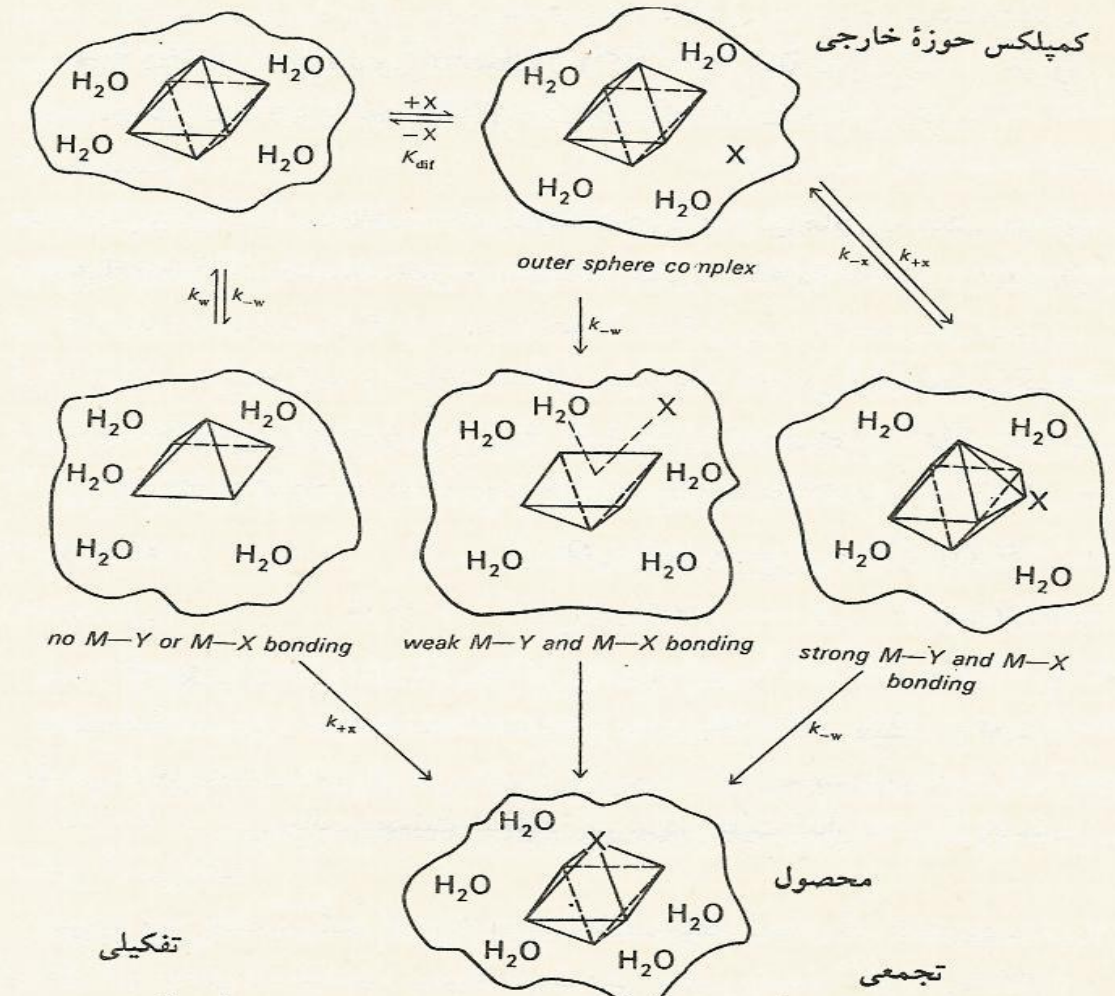 کمپلکس حوزهٔ خارجی
H₂O H₂O
H₂O H₂O
+X
−X
K_dif
H₂O H₂O
X
H₂O H₂O
outer sphere complex
k_w k_−w
k_−w
k_−x k_+x
H₂O H₂O
H₂O
H₂O H₂O
no M—Y or M—X bonding
H₂O X
H₂O H₂O
H₂O H₂O
weak M—Y and M—X bonding
H₂O H₂O
X
H₂O H₂O
strong M—Y and M—X
bonding
k_+x
k_−w
H₂O
X
H₂O H₂O
H₂O H₂O
محصول
تفکیلی
تجمعی